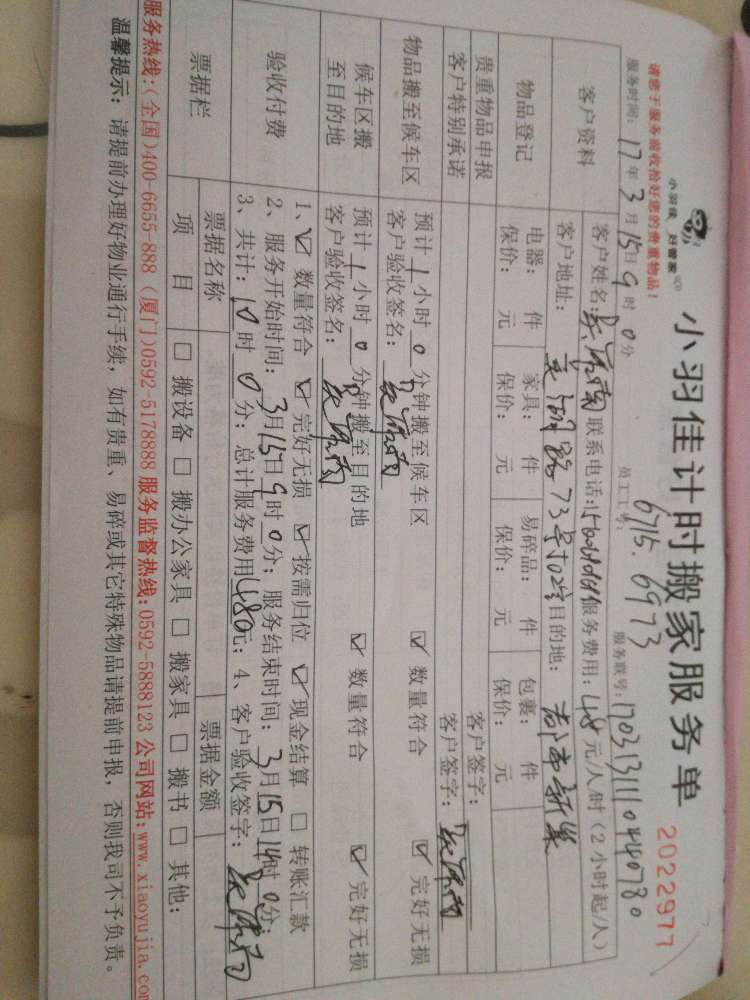 小羽佳 好管家
小羽佳计时搬家服务单 2022977
请您于服务前收拾好您的贵重物品!
员工工号: 6715.6973
服务时间: 17年3月15日9时0分 服务联号: 1703131110440780
客户资料
客户姓名: 联系电话: 服务费用: 48元/人/时(2小时起/人)
客户地址: 湖路73号702室 目的地: 都市新巢
物品登记
电器: 件 家具: 件 易碎品: 件 包裹: 件
保价: 元 保价: 元 保价: 元 保价: 元
贵重物品申报 客户签字:
客户特别承诺 客户签字:
物品搬至候车区
预计1小时0分钟搬至候车区 ☑ 数量符合 ☑ 完好无损
客户验收签名:
候车区搬至目的地
预计1小时0分钟搬至目的地 ☑ 数量符合 ☑ 完好无损
客户验收签名:
验收付费
1、☑ 数量符合 ☑ 完好无损 ☑ 按需归位 ☑ 现金结算 □ 转账汇款
2、服务开始时间: 3月15日9时0分; 服务结束时间: 3月15日14时0分;
3、共计: 10时0分; 总计服务费用480元; 4、客户验收签字:
票据栏
票据名称 票据金额
项目 □ 搬设备 □ 搬办公家具 □ 搬家具 □ 搬书 □ 其他:
服务热线:(全国)400-6655-888 (厦门)0592-5178888 服务监督热线:0592-5888123 公司网站:www.xiaoyujia.com
温馨提示: 请提前办理好物业通行手续, 如有贵重、易碎或其它特殊物品请提前申报, 否则我司不予负责。